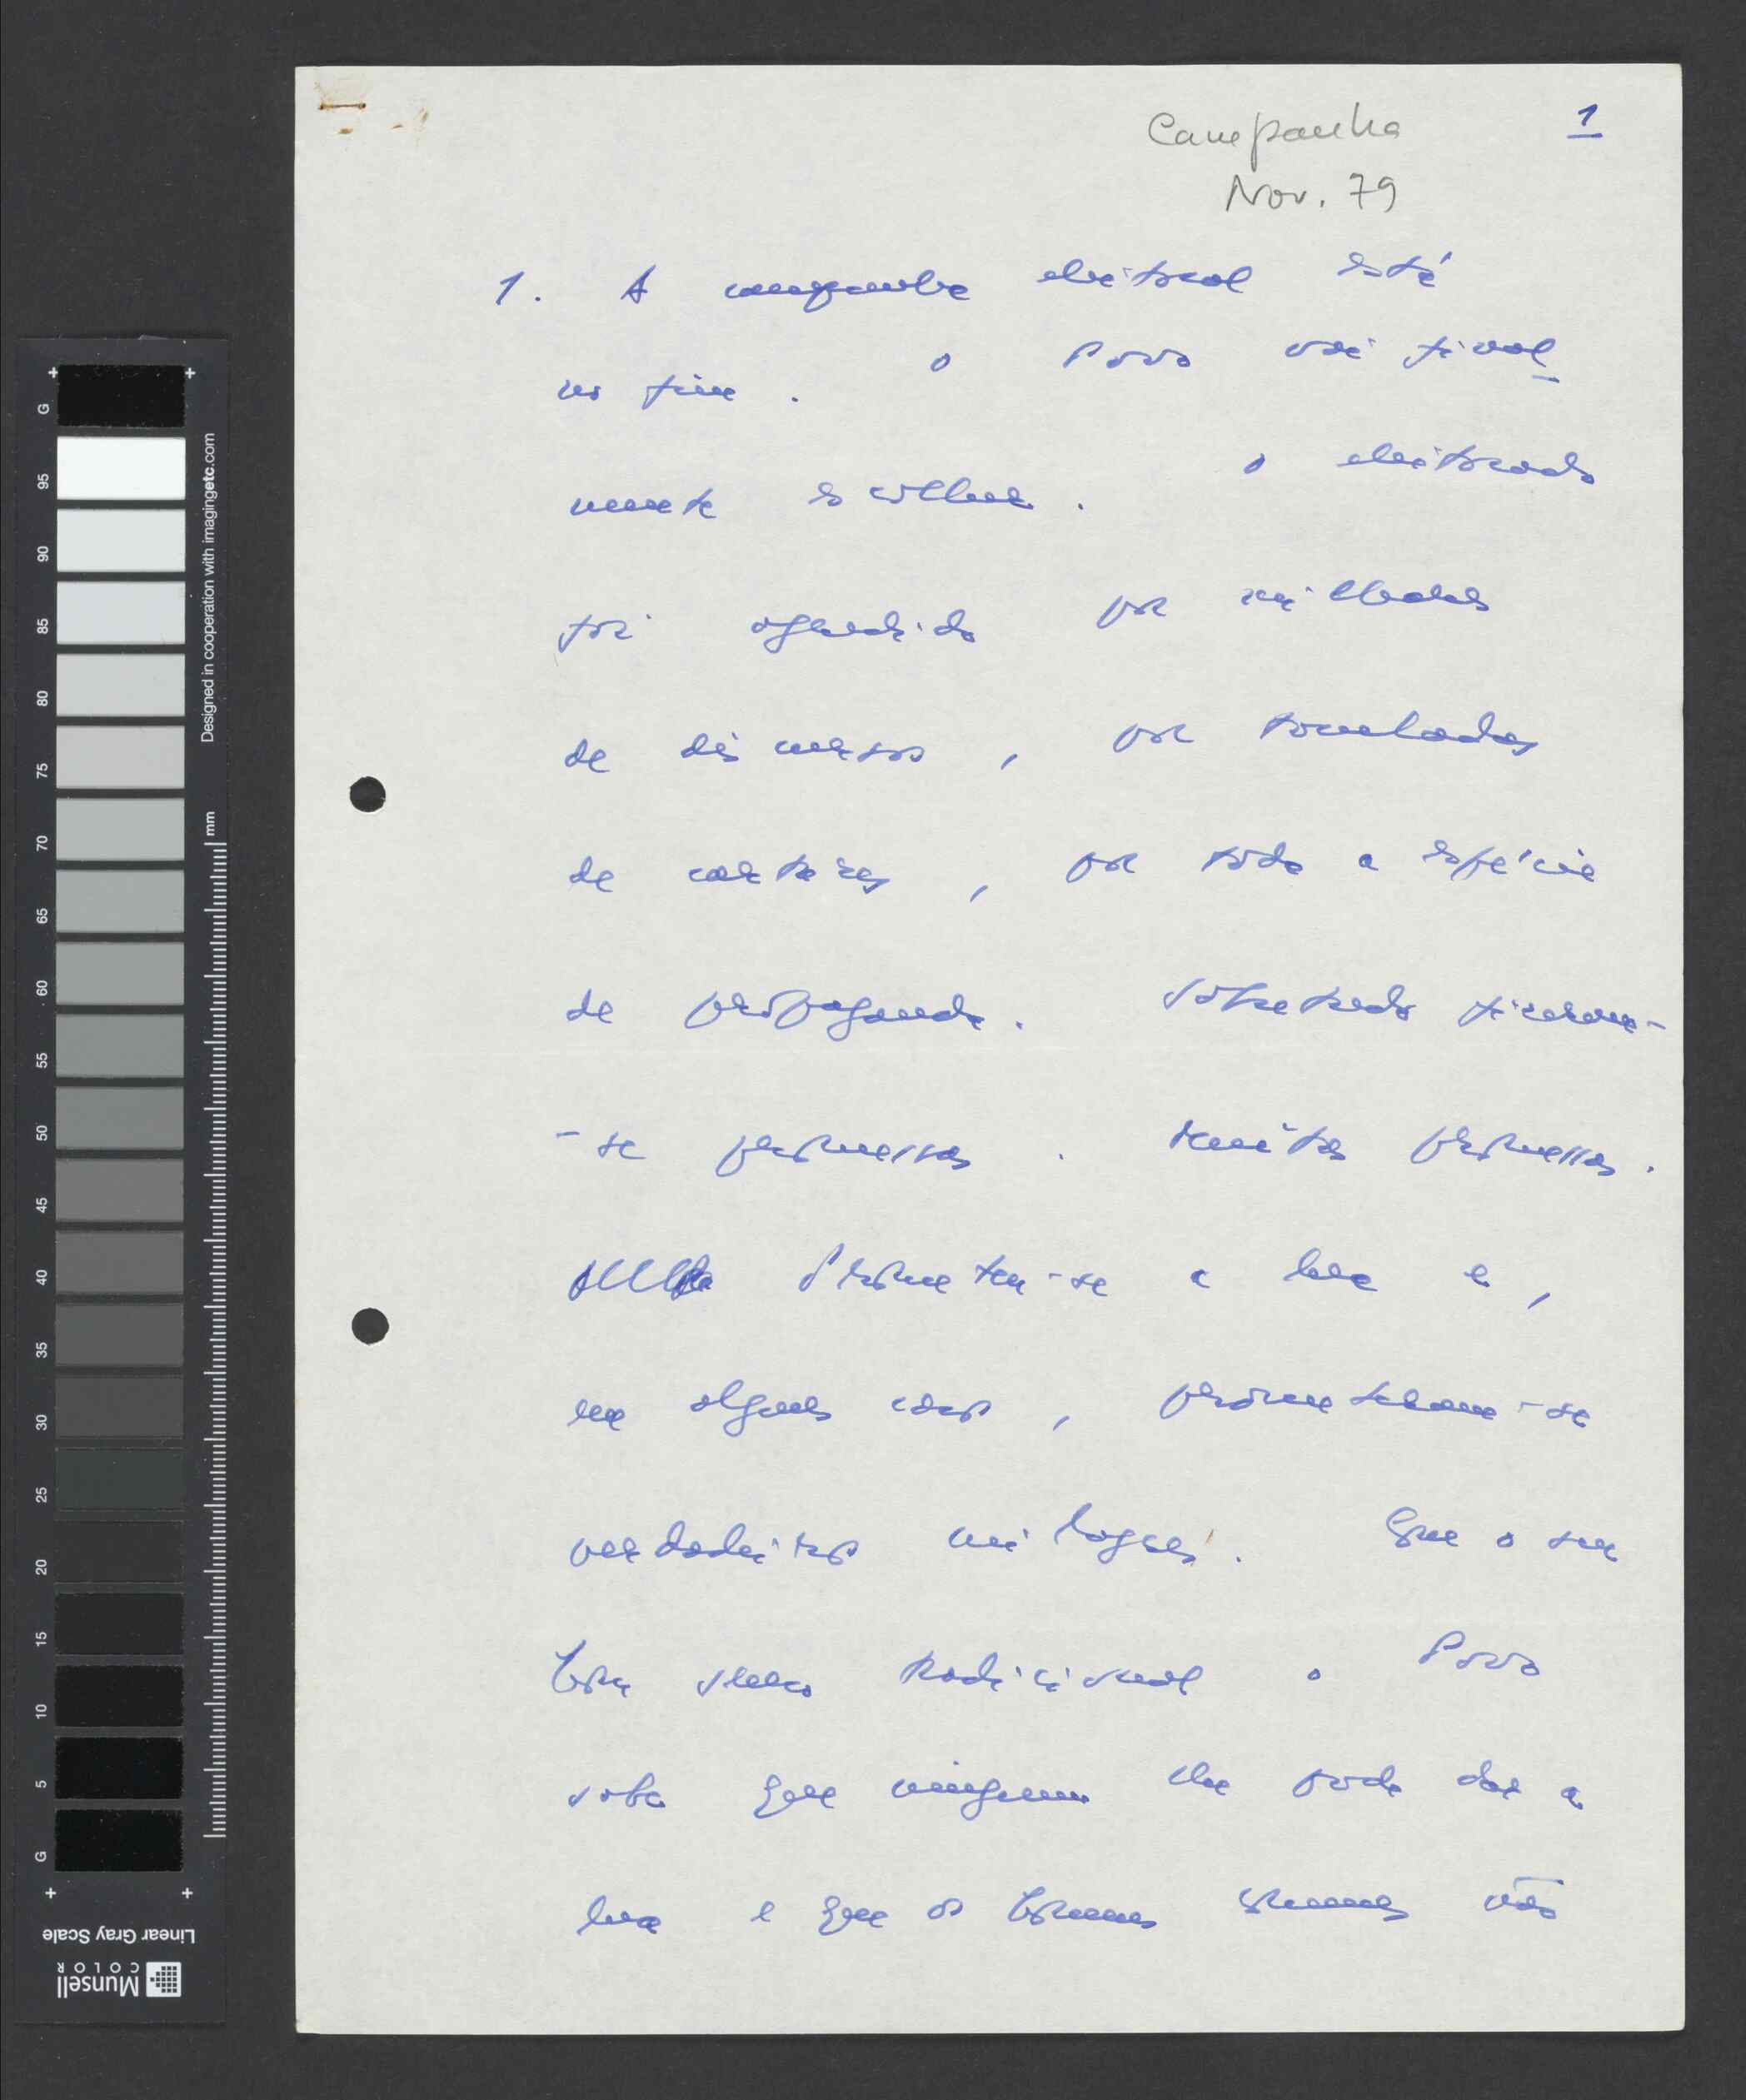 Campanha
1
Nov. 79
1. A campanha eleitoral está
no fim. o Povo vai final
mente escolher. o eleitorado
foi agredido por milhares
de discursos, por toneladas
de cartazes, por toda a espécie
de propaganda. Sobretudo fizeram-
-se promessas. Muitas promessas.
Prometeu-se a lua e,
em alguns casos, prometeram-se
verdadeiros milagres. Que o seu
bom senso tradicional o Povo
sabe que ninguem lhe pode dar a
lua e que os homens comuns não
Designed in cooperation with imagingetc.com
mm
G
95
90
85
80
75
70
65
60
55
50
45
40
35
30
25
20
15
10
5
G
Linear Gray Scale
Munsell
COLOR